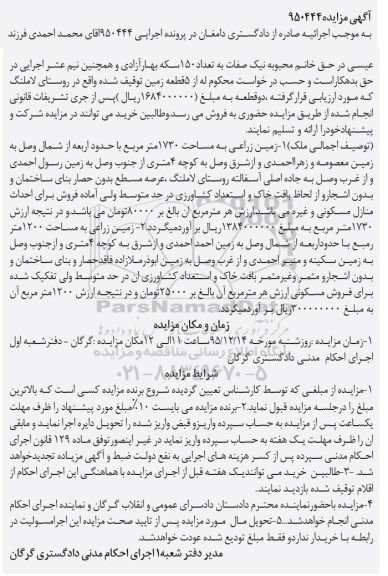 آگهی مزایده ۹۵۰۴۴۴
به موجب اجرائیه صادره از دادگستری دامغان در پرونده اجرایی ۹۵۰۴۴۴ اقای محمد احمدی فرزند
عیسی در حق خانم محبوبه نیک صفات به تعداد ۱۵۰ سکه بهارآزادی و همچنین نیم عشر اجرایی در
حق بدهکاراست و حسب در خواست محکوم له از ۵ قطعه زمین توقیف شده واقع در روستای لاملنگ
که مورد ارزیابی قرارگرفته ،دوقطعه به مبلغ (۱۶۸۴۰۰۰۰۰۰ ریال )پس از جری تشریفات قانونی
انجام شده از طریق مزایده حضوری به فروش می رسدوطالبین خرید می توانند در مزایده شرکت و
پیشنهادخودرا ارائه و تسلیم نمایند.
(توصیف اجمالی ملک)۱-زمین زراعی به مساحت ۱۷۳۰متر مربع با حدود اربعه از شمال وصل به
زمین معصومه و زهرااحمدی و ازشرق وصل به کوچه ۴متری از جنوب وصل به زمین رسول احمدی
و از غرب وصل به جاده اصلی آسفالته روستای لاملنگ ،عرصه مسطع بدون حصار بنای ساختمان و
بدون اشجارو از لحاظ بافت خاک و استعداد کشاورزی در حد متوسط ولی آماده فروش برای احداث
منازل مسکونی و غیره می باشد.ارزش هر مترمربع ان بالغ بر ۸۰۰۰۰تومان می باشد.و در نتیجه ارزش
۱۷۳۰متر مربع به مبلغ ۱۳۸۴۰۰۰۰۰۰ریال بر آوردمیگردد.۲-زمین زراعی به مساحت ۱۲۰۰متر
رمبع با حدوداربعه از شمال وصل به زمین احمد احمدی و ازشرق به کوچه ۴متری و ازجنوب وصل
به زمین سکینه و منیر احمدی و از غرب وصل به زمین ابوذرملازاده فاقدحصار و بنای ساختمان و
بدون اشجارو مثمر وغیرمثمر بافت خاک و استعداد کشاورزی ان در حد متوسط ولی تفکیک شده
برای فروش مسکونی ارزش هر مترمربع آن بالغ بر ۲۵۰۰۰تومان و در نتیجه ارزش ۱۲۰۰متر مربع آن
به مبلغ ۳۰۰۰۰۰۰۰۰ریال بر آوردمیگردد.
زمان و مکان مزایده
۱-زمان مزایده :روزشنبه مورخه ۹۵/۱۲/۱۴ ساعت ۱۱الی ۱۲مکان مزایده :گرگان - دفترشعبه اول
اجرای احکام مدنی دادگستری گرگان
شرایط مزایده
۱-مزایده از مبلغی که توسط کارشناس تعیین گردیده شروع برنده مزایده کسی است که بالاترین
مبلغ را درجلسه مزایده قبول نماید.۲-برنده مزایده می بایست ۱۰٪مبلغ مورد پیشنهاد را ظرف مهلت
یکساعت پس از مزایده به حساب سپرده واریزو قبض واریز شده را تحویل دایره اجرا نماید و مابقی
ان را ظرف مهلت یک هفته به حساب سپرده واریز نماید در غیر اینصورتوفق ماده ۱۲۹ قانون اجرای
احکام مدنی سپرده پس از کسر هزینه های اجرایی به نفع دولت ضبط و آگهی مزیاده تجدیدخواهد
شد. ۳-طالبین خرید می توانندیک هفته قبل از اجرای مزایده با هماهنگی این اجرای احکام از
اقلام توقیف شده بازدید نمایند.
۴-مزایده باحضورنماینده محترم دادستان دادسرای عمومی و انقلاب گرگان و نماینده اجرای احکام
مدنی انجام خواهدشد..۵-تحویل مال مورد مزایده پس از تایید صحت مزایده این اجرامسولیت در
رابطه با خریدار نداردو فقط مبلغ تودیع شده عودت خواهدشد.
مدیر دفتر شعبه۱ اجرای احکام مدنی دادگستری گرگان